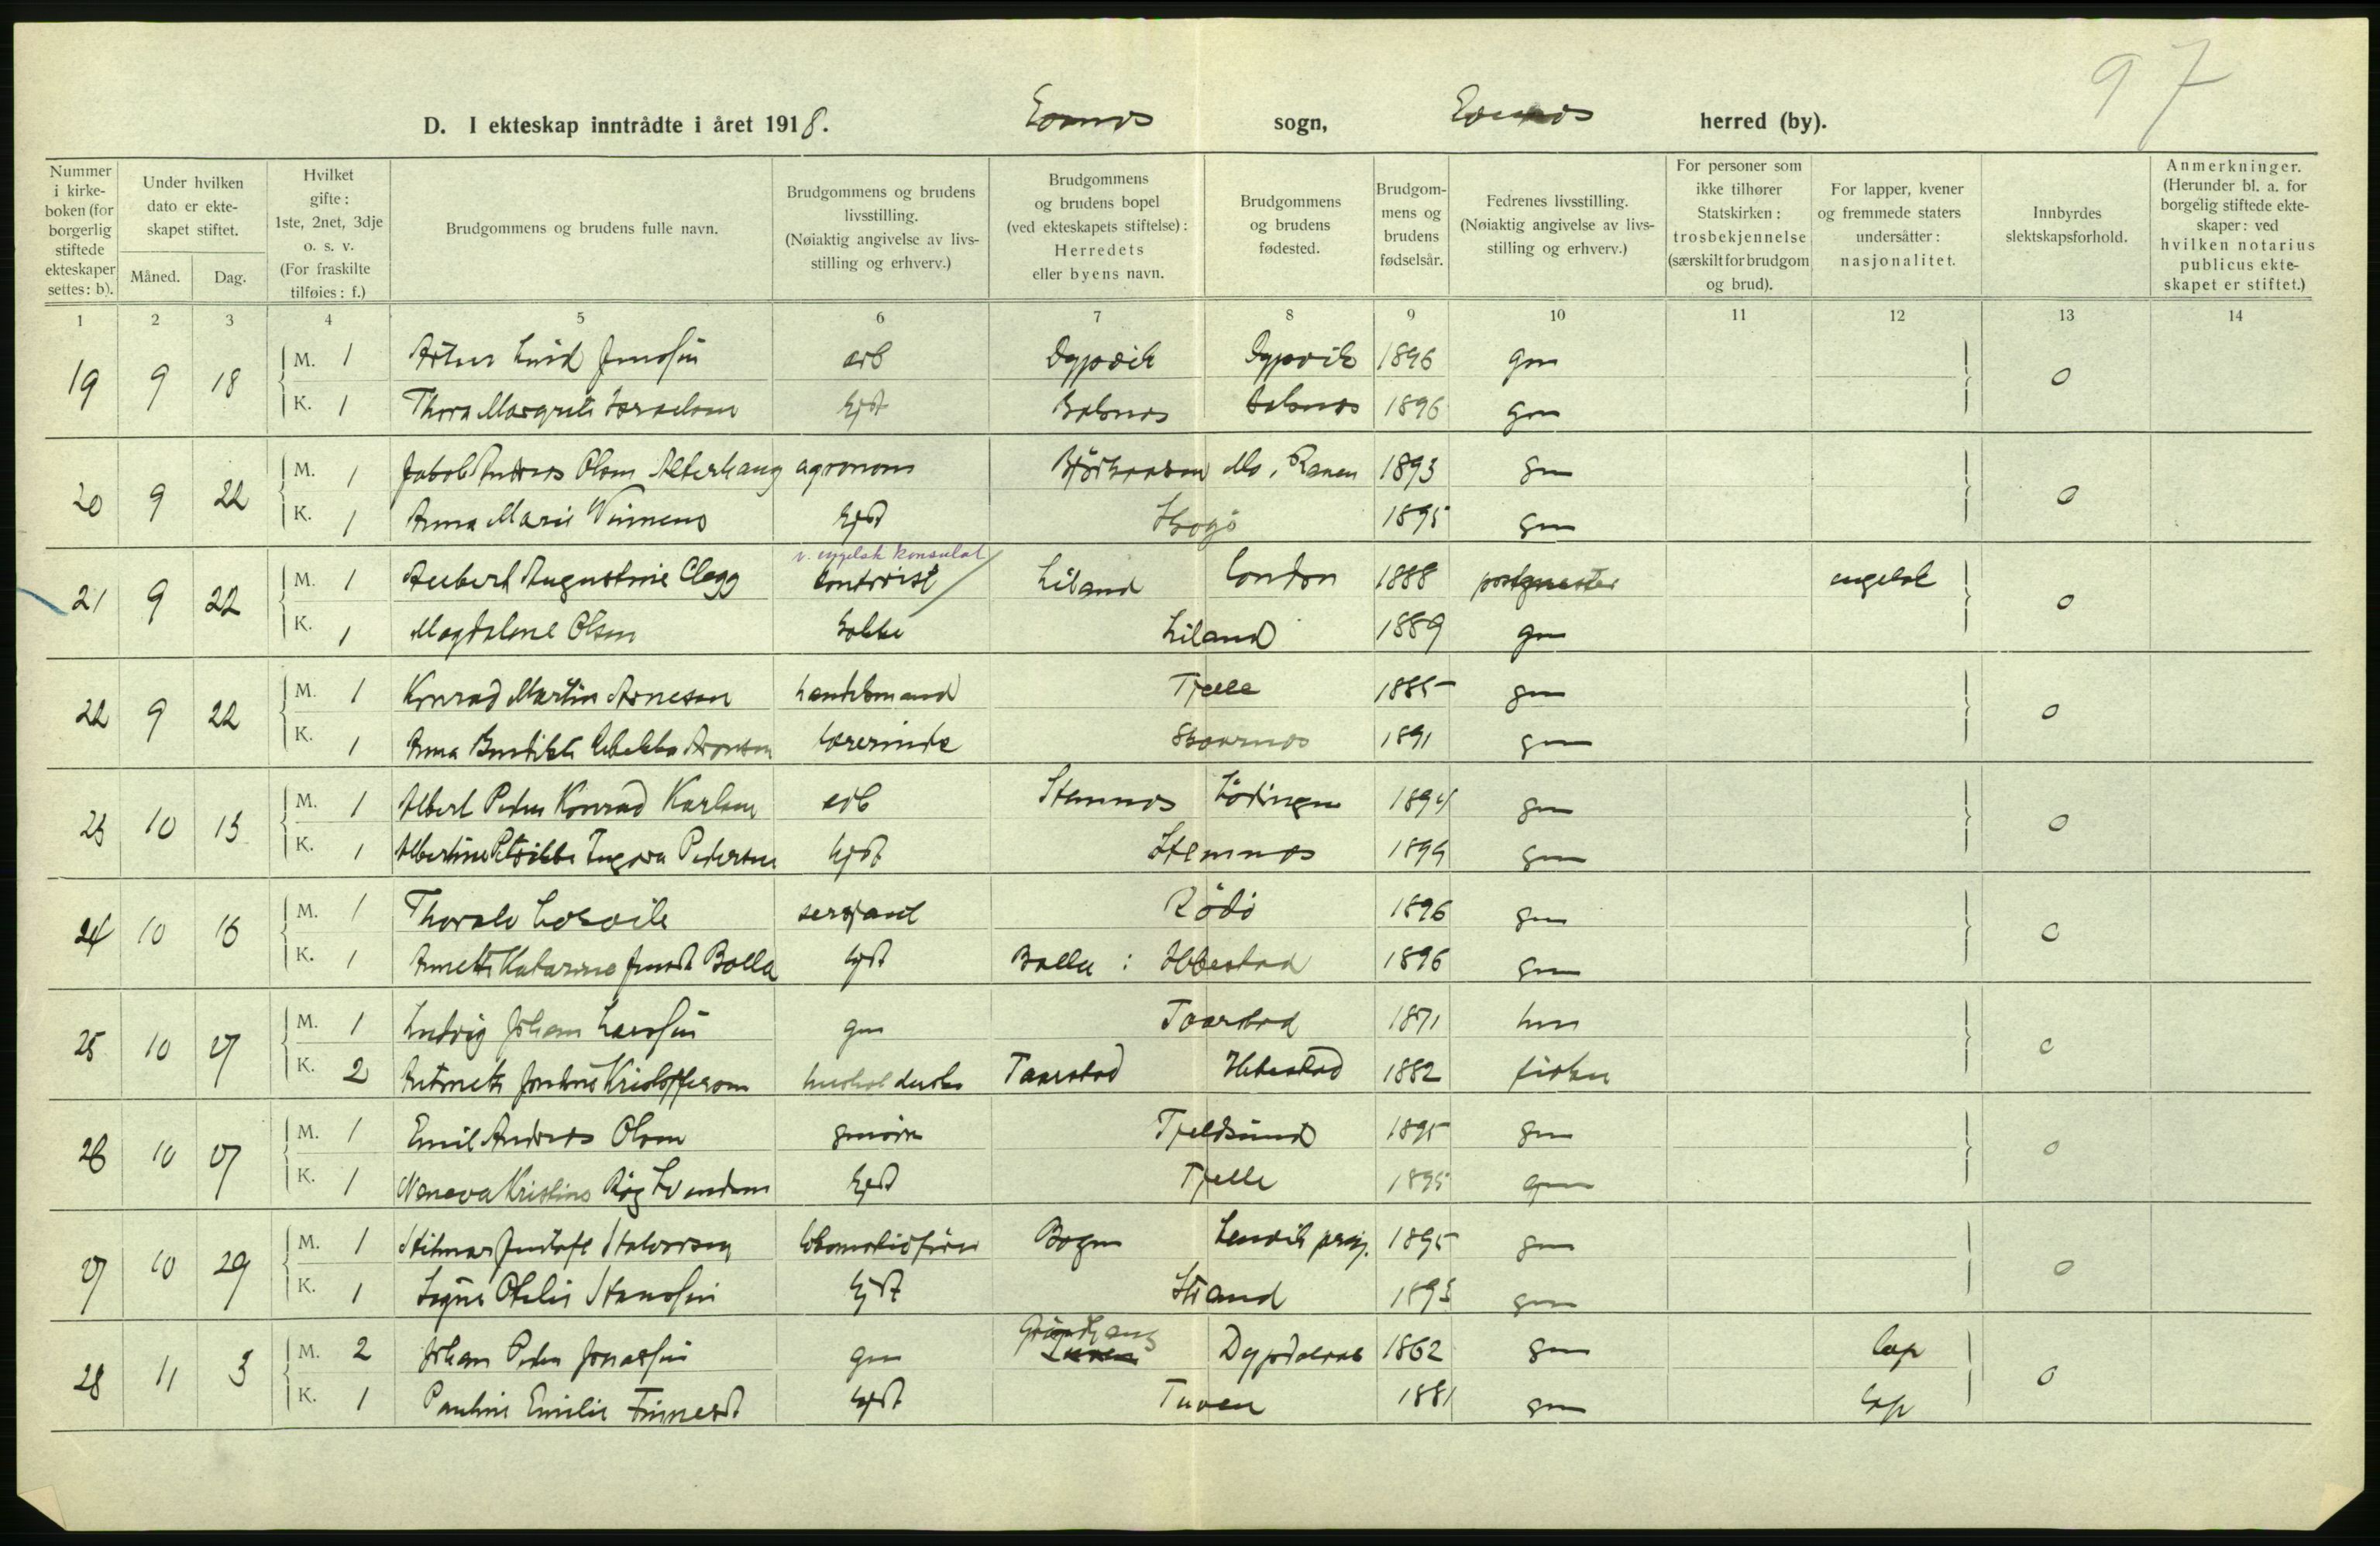 97
D. I ekteskap inntrådte i året 1918. Evenes sogn, Evenes herred (by).
Nummer i kirke-boken (for borgerlig stiftede ekteskaper settes: b).
Under hvilken dato er ekte-skapet stiftet.
Måned. Dag.
Hvilket gifte: 1ste, 2net, 3dje o. s. v. (For fraskilte tilføies: f.)
Brudgommens og brudens fulle navn.
Brudgommens og brudens livsstilling. (Nøiaktig angivelse av livs-stilling og erhverv.)
Brudgommens og brudens bopel (ved ekteskapets stiftelse): Herredets eller byens navn.
Brudgommens og brudens fødested.
Brudgom-mens og brudens fødselsår.
Fedrenes livsstilling. (Nøiaktig angivelse av livs-stilling og erhverv.)
For personer som ikke tilhører Statskirken: trosbekjennelse (særskilt for brudgom og brud).
For lapper, kvener og fremmede staters undersåtter: nasjonalitet.
Innbyrdes slektskapsforhold.
Anmerkninger. (Herunder bl. a. for borgelig stiftede ekte-skaper: ved hvilken notarius publicus ekte-skapet er stiftet.)
1 2 3 4 5 6 7 8 9 10 11 12 13 14
19 9 18 M. 1 arb Dypvik Dypvik 1896 gm 0
K. 1 Thora Margrete hjst Boknes Boknes 1896 gm
20 9 22 M. 1 Jakob Andreas Olsen Alterhaug agronom Mo, Ranen 1893 gm 0
K. 1 Anna Marie hjst 1895 gm
v. engelsk konsulat
21 9 22 M. 1 Herbert Augustine Clegg kontorist Liland London 1888 postmester engelsk 0
K. 1 Magdalene Olsen kokke Liland 1889 gm
22 9 22 M. 1 Konrad Martin Arnesen handelsmand Tjelle 1885 gm 0
K. 1 Anna lærerinde 1891 gm
23 10 13 M. 1 Albert Peder Konrad Karlsen arb Stemnes Lødingen 1894 gm 0
K. 1 Albertine Petrikke Ingvara Pedersen hjst Stemnes 1899 gm
24 10 16 M. 1 Thoralv sersjant Rödö 1896 gm 0
K. 1 Anette Katarine Balla hjst Balla: Ibbestad 1896 gm
25 10 27 M. 1 Ludvig Johan Larssen gm Taarstad 1871 0
K. 2 Antonette Kristoffersen husholderske Taarstad Ibbestad 1882 fisker
26 10 27 M. 1 Emil Andreas Olsen Tjeldsund 1895 gm 0
K. 1 Kristine hjst Tjelle 1895 gm
27 10 29 M. 1 Hilmar Gustaft Halvorsen lokomotivfører Bogen Lenvik prgj. 1895 gm 0
K. 1 Signe Otelie Hanssen hjst Strand 1893 gm
28 11 3 M. 2 Johan Peder Jonassen gm 1862 gm lap 0
K. 1 Pauline Emilie hjst Tuven 1881 gm lap